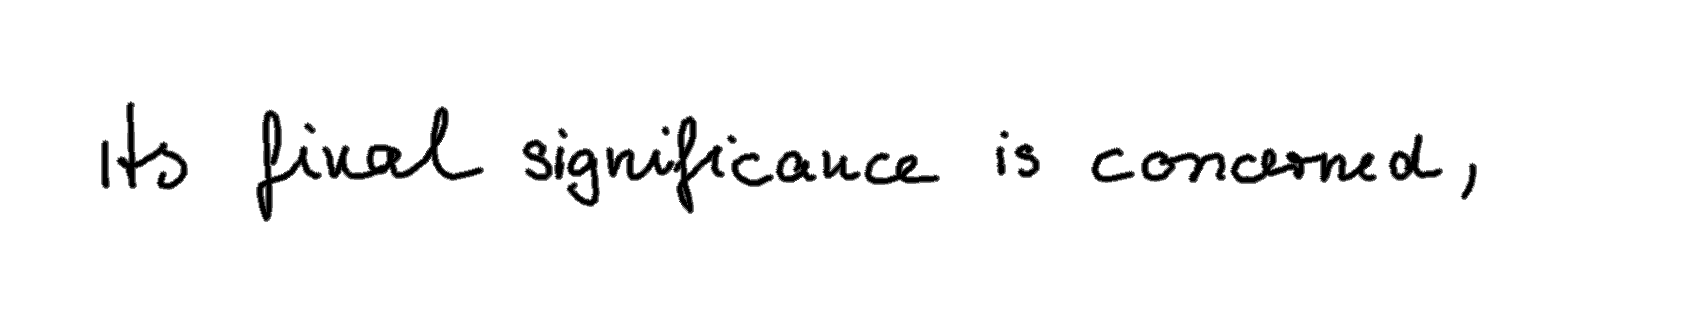 Its final significance is concerned,